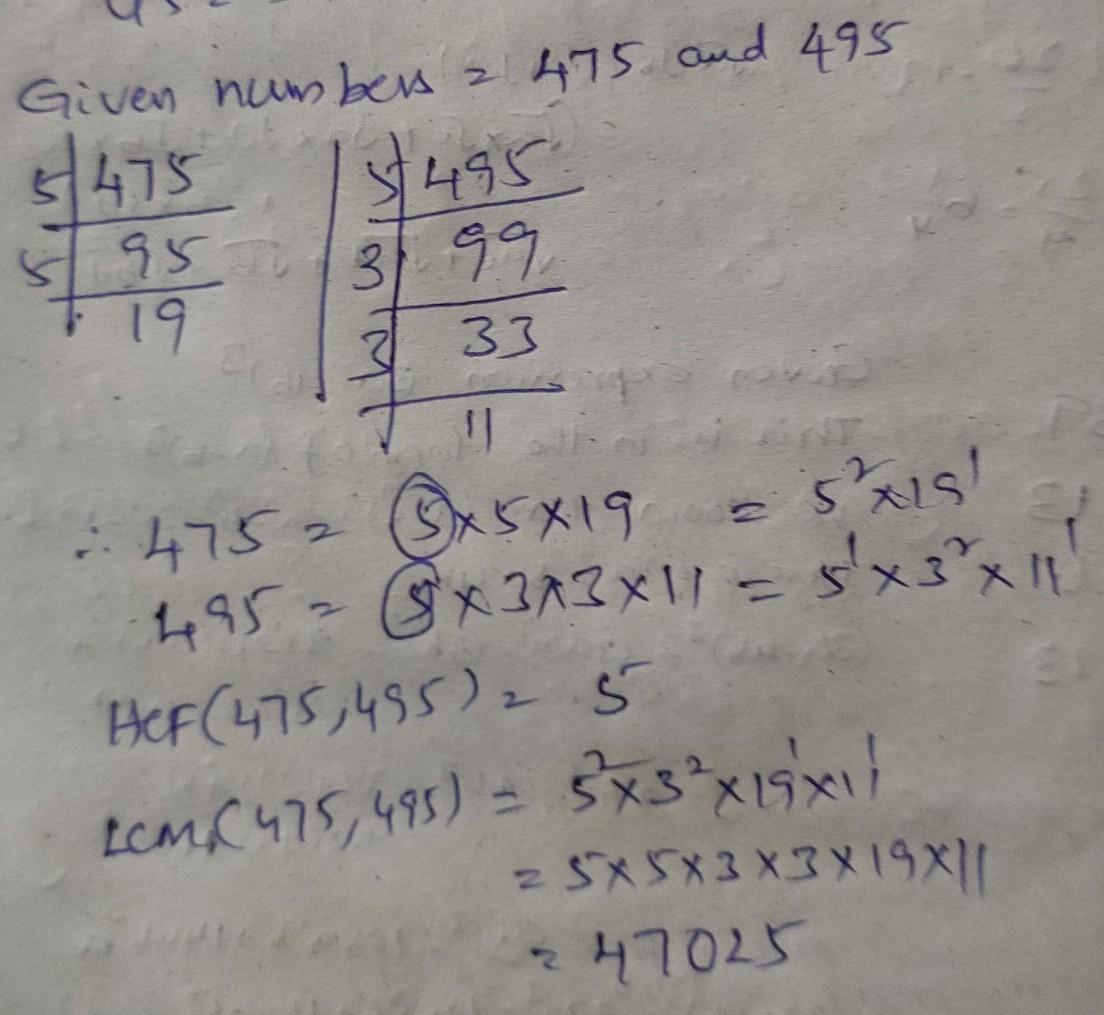 Given numbers = 475 and 495
5 | 475
5 | 95
19
5 | 495
3 | 99
3 | 33
11
∴ 475 = 5×5×19 = 5²×19¹
495 = 5×3×3×11 = 5¹×3²×11¹
HCF(475,495) = 5
LCM(475,495) = 5²×3²×19¹×11¹
= 5×5×3×3×19×11
= 47025